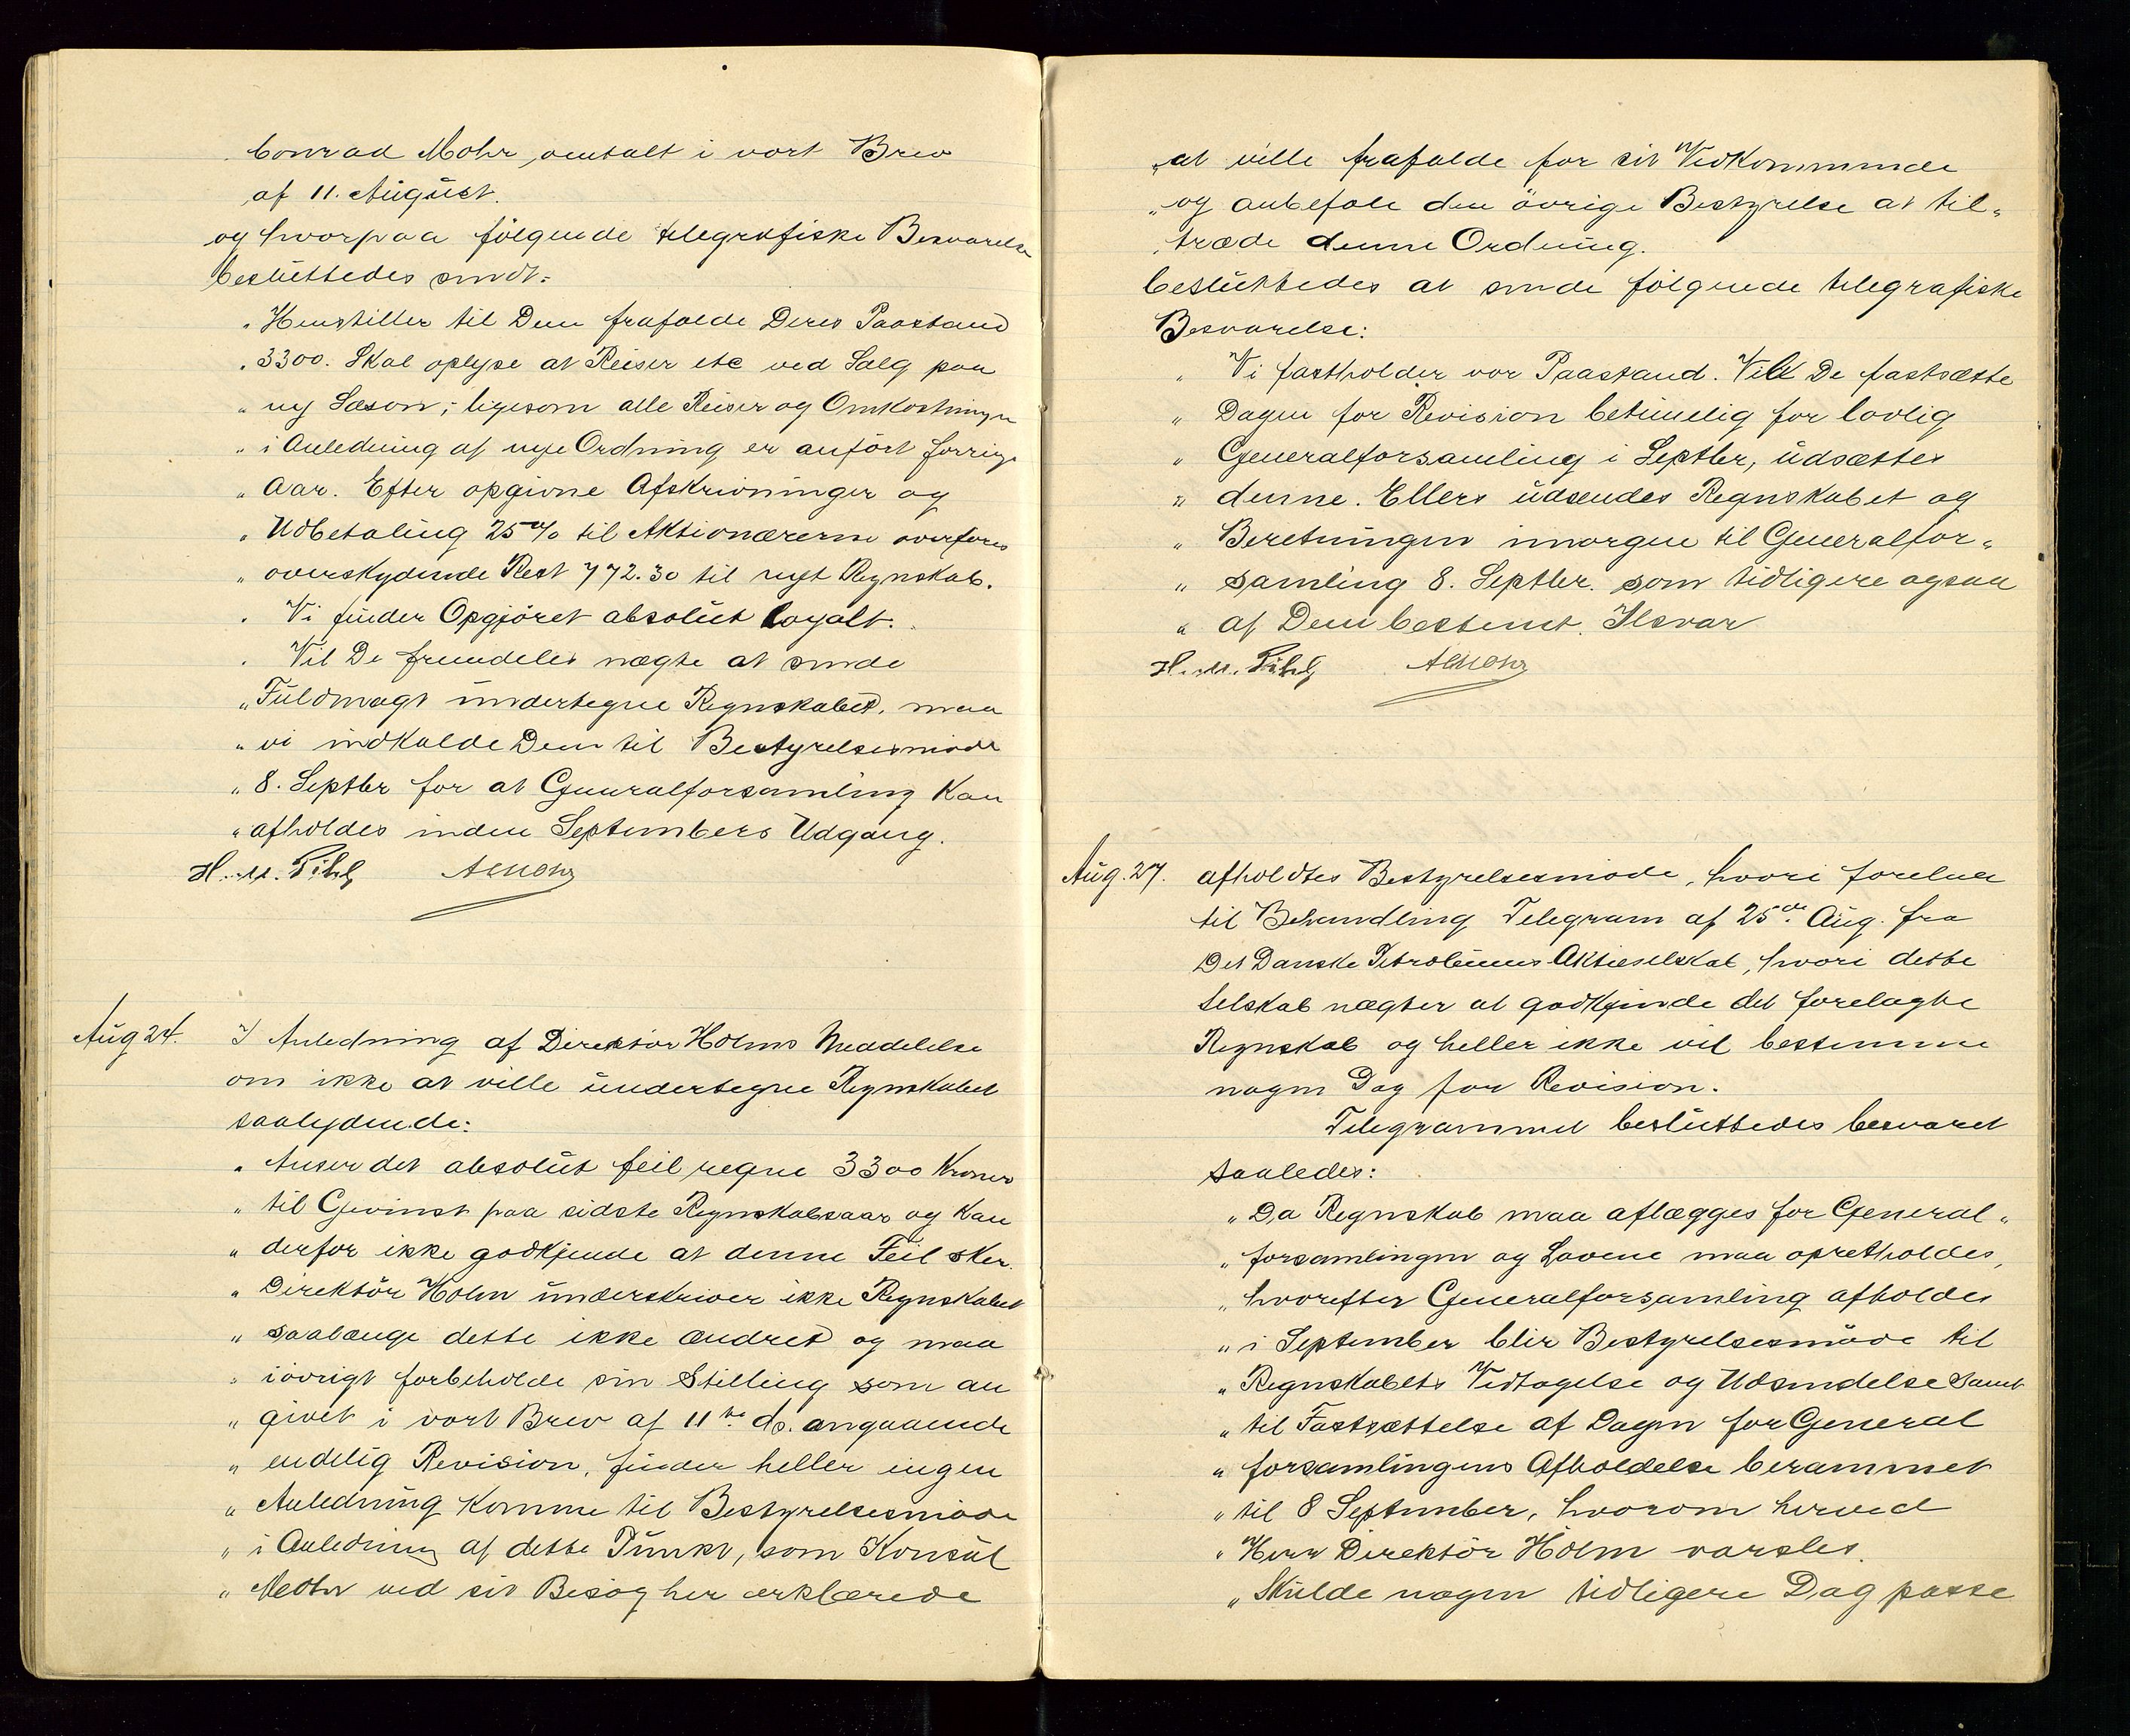 Conrad Mohr, omtalt i vort Brev
af 11. August.
og hvorpaa fölgende telegrafiske Besvarelse
besluttedes sendt:
" Henstiller til Dem frafalde Deres Paastand
" 3300. Skal oplyse at Reiser etc ved Salg paa
" ny Sæson; ligesom alle Reiser og Omkostninger
" i Anledning af nye Ordning er anfört forrige
" Aar. Efter opgivne Afskrivninger og
" Udbetaling 25% til Aktionærerne overföres
" overskydende Rest 772.30 til nyt Regnskab.
" Vi finder Opgjöret absolut loyalt.
" Vil De fremdeles nægte at sende
" Fuldmagt undertegne Regnskabet, maa
" vi indkalde Dem til Bestyrelsesmöde
" 8. Septbr for at Generalforsamling kan
" afholdes inden Septembers Udgang.
H. M. Pihl AMohr
Aug 24. I Anledning af Direktör Holms Meddelelse
om ikke at ville undertegne Regnskabet
saalydende:
" Anser det absolut feil regne 3300 Kroner
" til Gevinst paa sidste Regnskabsaar og kan
" derfor ikke godkjende at denne Feil sker.
" Direktör Holm underskriver ikke Regnskabet
" saalænge dette ikke ændret og maa
" iövrigt forbeholde sin Stilling som an
" givet i vort Brev af 11te ds. angaaende
" endelig Revision, finder heller ingen
" Anledning komme til Bestyrelsesmöde
" i Anledning af dette Punkt, som Konsul
" Mohr ved sit Besög her erklærede
" at ville frafalde for sit Vedkommende
" og anbefale den övrige Bestyrelse at til-
" træde denne Ordning.
besluttedes at sende fölgende telegrafiske
Besvarelse:
" Vi fastholder vor Paastand. Vil De fastsætte
" Dagen for Revision betimelig for lovlig
" Generalforsamling i Septbr, udsættes
" denne. Ellers udsendes Regnskabet og
" Beretningen imorgen til Generalfor-
" samling 8. Septbr. som tidligere ogsaa
" af Dem bestemt. Ilsvar
H. M. Pihl AMohr
Aug. 27. afholdtes Bestyrelsesmöde, hvori forelaa
til Behandling Telegram af 25de Aug. fra
Det Danske Petroleums Aktieselskab, hvori dette
Selskab nægter at godkjende det forelagte
Regnskab og heller ikke vil bestemme
nogen Dag for Revision.
Telegrammet besluttedes besvaret
saaledes:
" Da Regnskab maa aflægges for General-
" forsamlingen og Lovene maa opretholdes,
" hvorefter Generalforsamling afholdes
" i September blir Bestyrelsesmöde til
" Regnskabets Vedtagelse og Udsendelse samt
" til Fastsættelse af Dagen for General
" forsamlingens Afholdelse berammet
" til 8 September, hvorom herved
" Herr Direktör Holm varsles.
" Skulde nogen tidligere Dag passe